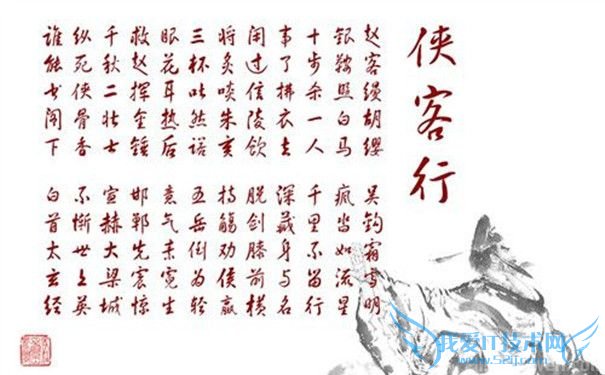 侠客行
赵客缦胡缨 吴钩霜雪明
银鞍照白马 飒沓如流星
十步杀一人 千里不留行
事了拂衣去 深藏身与名
闲过信陵饮 脱剑膝前横
将炙啖朱亥 持觞劝侯嬴
三杯吐然诺 五岳倒为轻
眼花耳热后 意气素霓生
救赵挥金锤 邯郸先震惊
千秋二壮士 宣赫大梁城
纵死侠骨香 不惭世上英
谁能书阁下 白首太玄经
我爱IT技术网